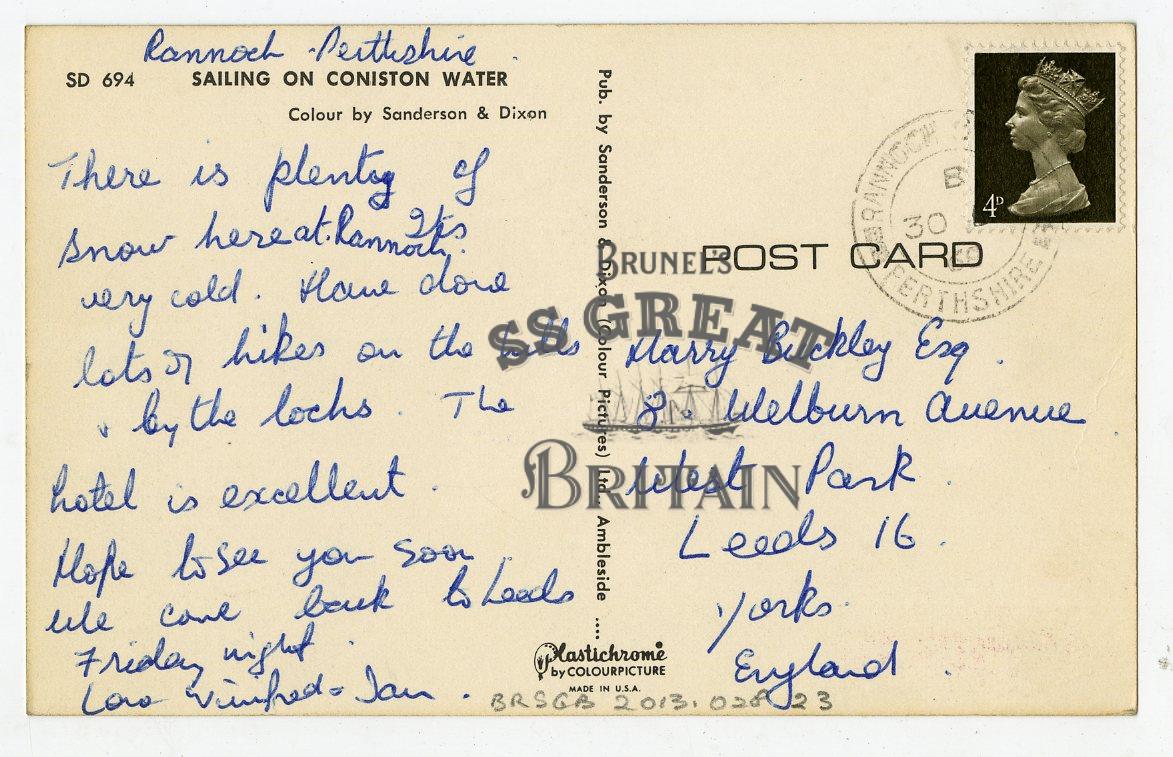 Rannoch Perthshire.
SD 694 SAILING ON CONISTON WATER
Colour by Sanderson & Dixon
There is plentog of
snow here at Rannoch. Its
very cold. Have done
lots of hikes on the hills
& by the lochs. The
hotel is excellent.
Hope to see you soon
We come back to Leeds
Friday night.
Love Winifred & Ian.
Pub. by Sanderson & Dixon (Colour Pictures) Ltd., Ambleside ....
Plastichrome
by COLOURPICTURE
MADE IN U.S.A.
POST CARD
4D
RANNOCH
30
PERTHSHIRE
Harry Buckley Esq.
8. Welburn Avenue
West Park.
Leeds 16.
Yorks.
England.
BRUNEL'S
SS GREAT
BRITAIN
BRSGB 2013.028 23